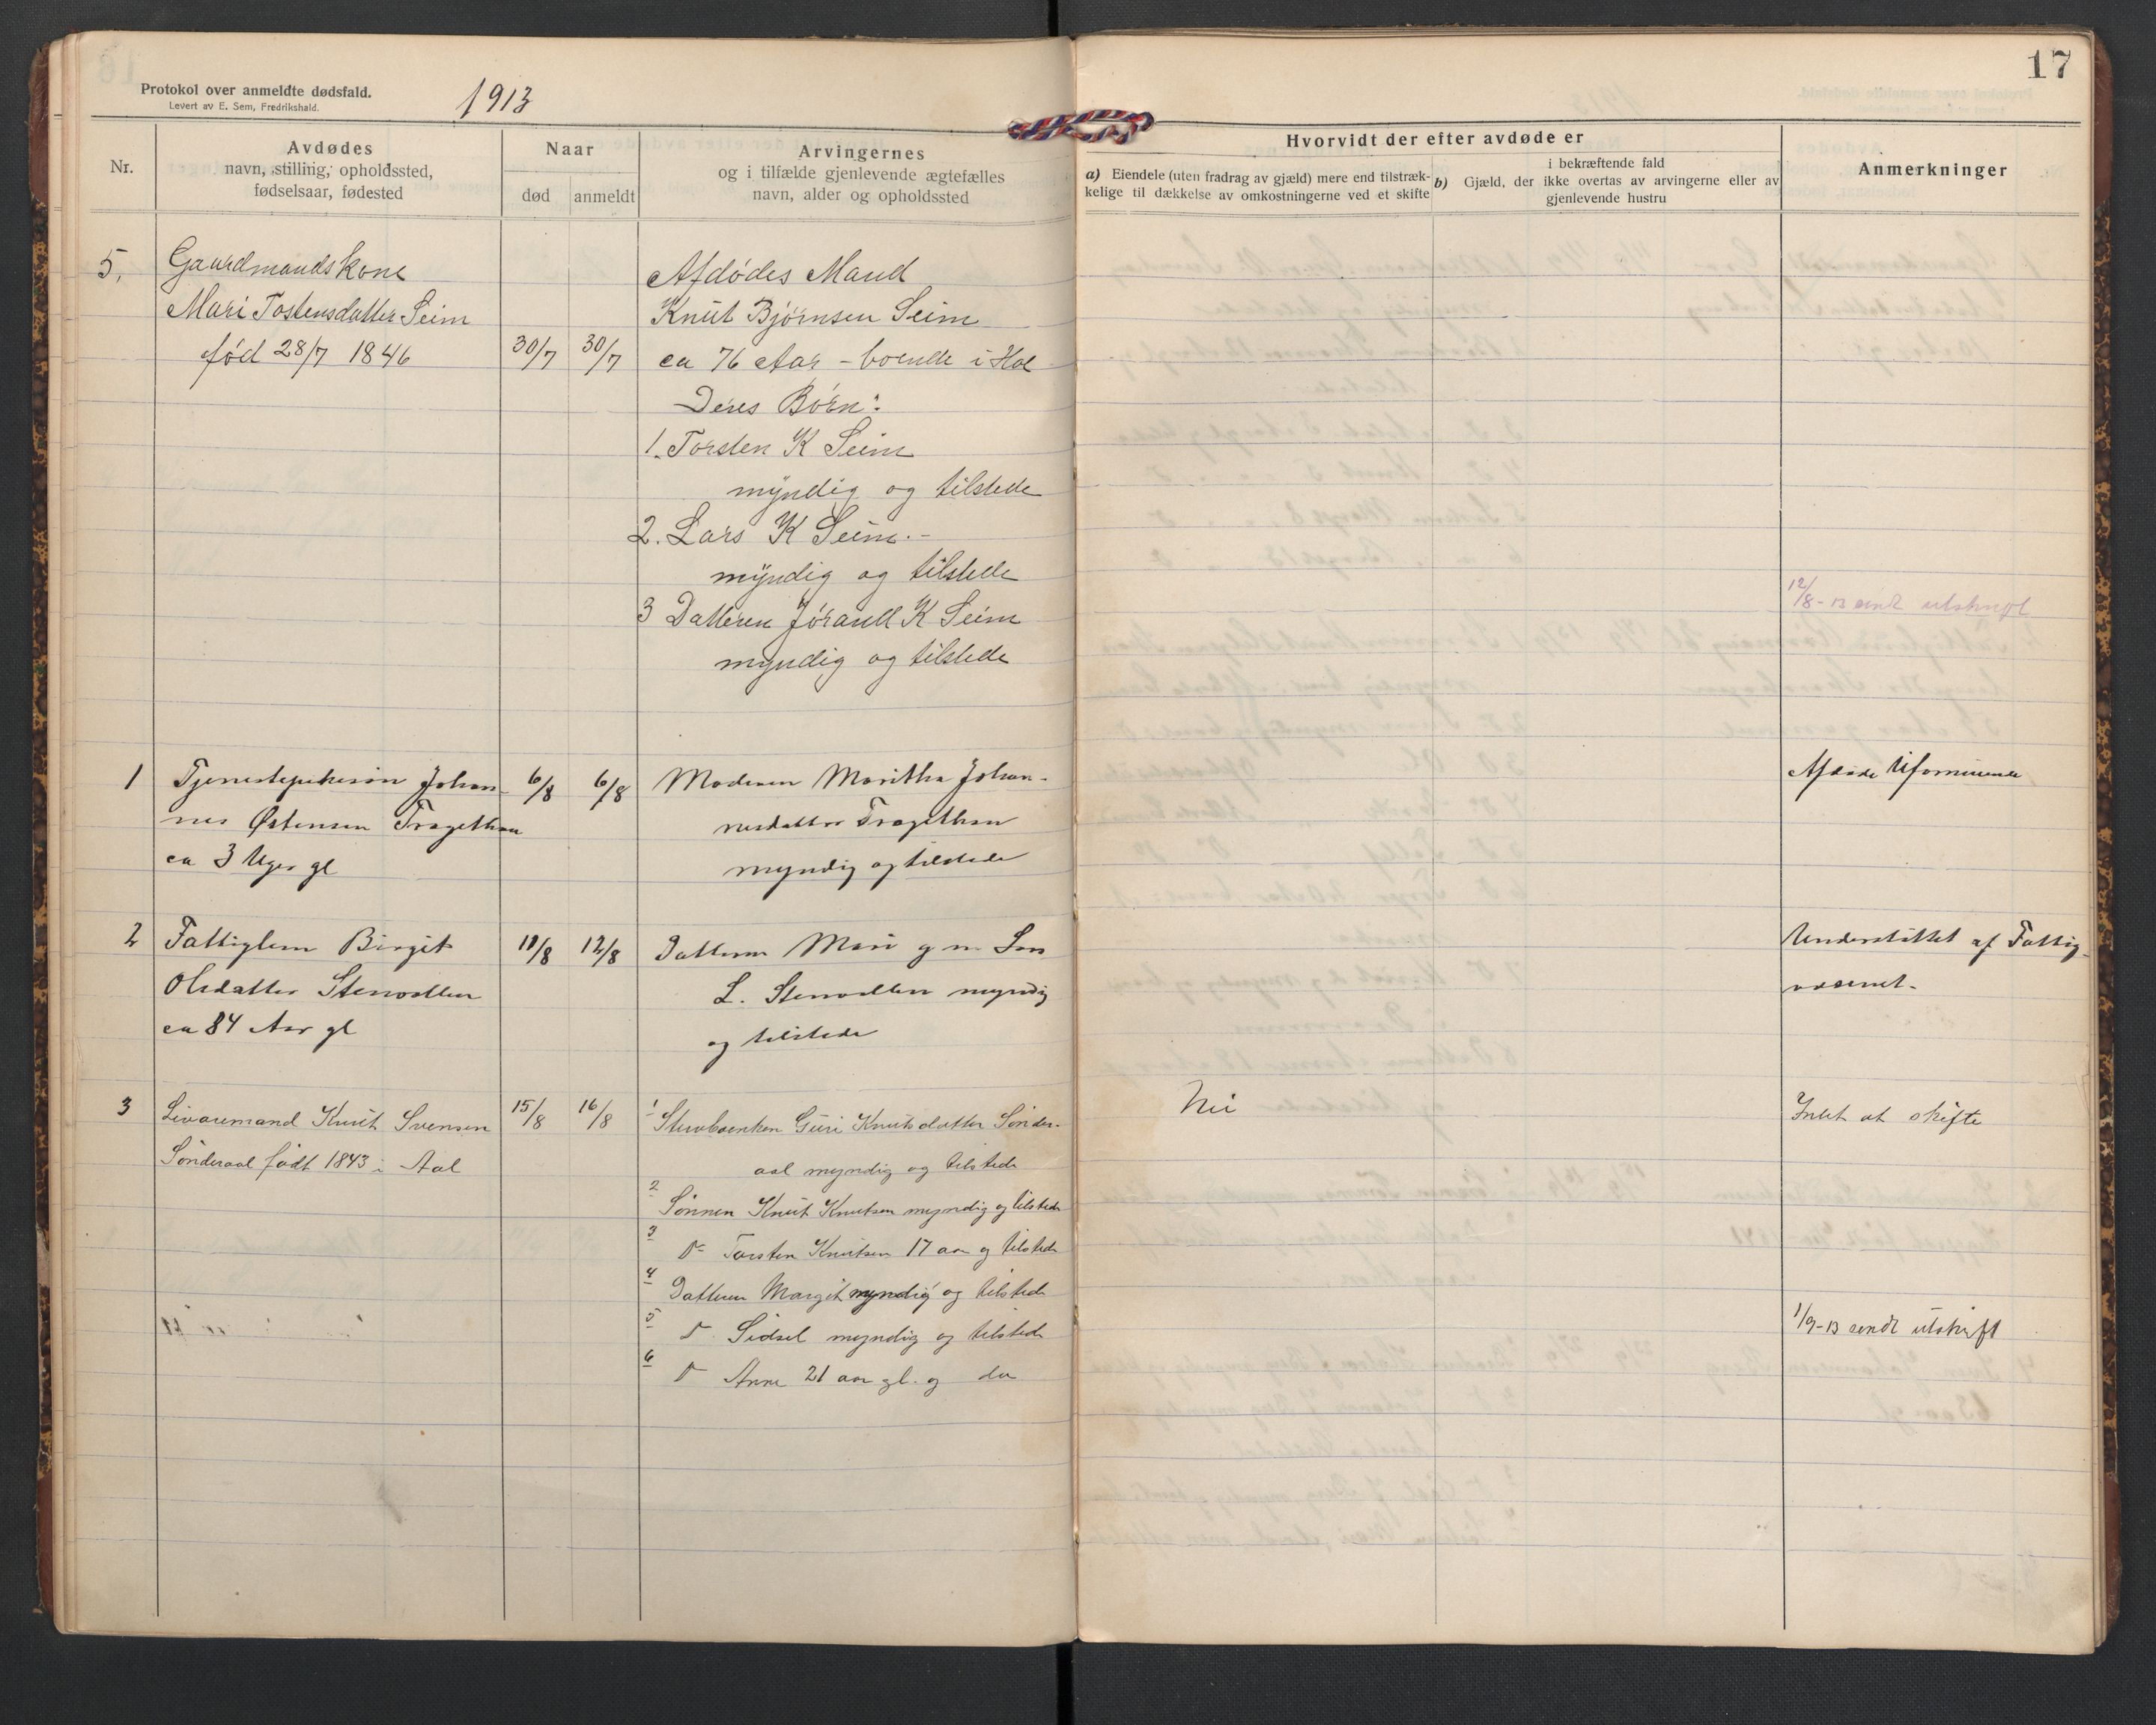 17
Protokol over anmeldte dødsfald.
Levert av E. Sem, Fredrikshald.
1913
Nr.
Avdødes
navn, stilling, opholdssted,
fødselsaar, fødested
Naar
død
anmeldt
Arvingernes
og i tilfælde gjenlevende ægtefælles
navn, alder og opholdssted
Hvorvidt der efter avdøde er
a) Eiendele (uten fradrag av gjæld) mere end tilstræk-
kelige til dækkelse av omkostningerne ved et skifte
b) Gjæld, der
i bekræftende fald
ikke overtas av arvingerne eller av
gjenlevende hustru
Anmerkninger
5.
Gaardmandskone
Mari Tostensdatter Seim
født 28/7 1846
30/7
30/7
Afdødes Mand
Knut Bjørnsen Seim
ca 76 Aar - boende i Hol
Deres Børn:
1. Torsten K Seim
myndig og tilstede
2. Lars K Seim.-
myndig og tilstede
3 Datteren Jørand K Seim
myndig og tilstede
12/8-13 sendt utskrift
1
Tjenestepikesøn Johan-
nes Østensen Tragethon
ca 3 Uger gl
6/8
6/8
Moderen Maritha Johan-
nesdatter Tragethon
myndig og tilstede
Afdøde Uformuende
2
Fattiglem Birgit
Olsdatter Stenvollen
ca 84 Aar gl
11/8
12/8
Datteren Mari g m
L. Stenvollen myndig
og tilstede
Understøttet af Fattig-
væsenet.
3
Livøremand Knut Svensen
Sønderaal født 1843 i Aal
15/8
16/8
1 Stervboenken Guri Knutsdatter Sønder-
aal myndig og tilstede
2 Sønnen Knut Knutsen myndig og tilstede
3 Do Torsten Knutsen 17 aar og tilstede
4 Datteren Margit myndig og tilstede
5 Do Sidsel myndig og tilstede
6 Do Anne 21 aar gl. og do
Nei
Intet at skifte
1/9-13 sendt utskrift